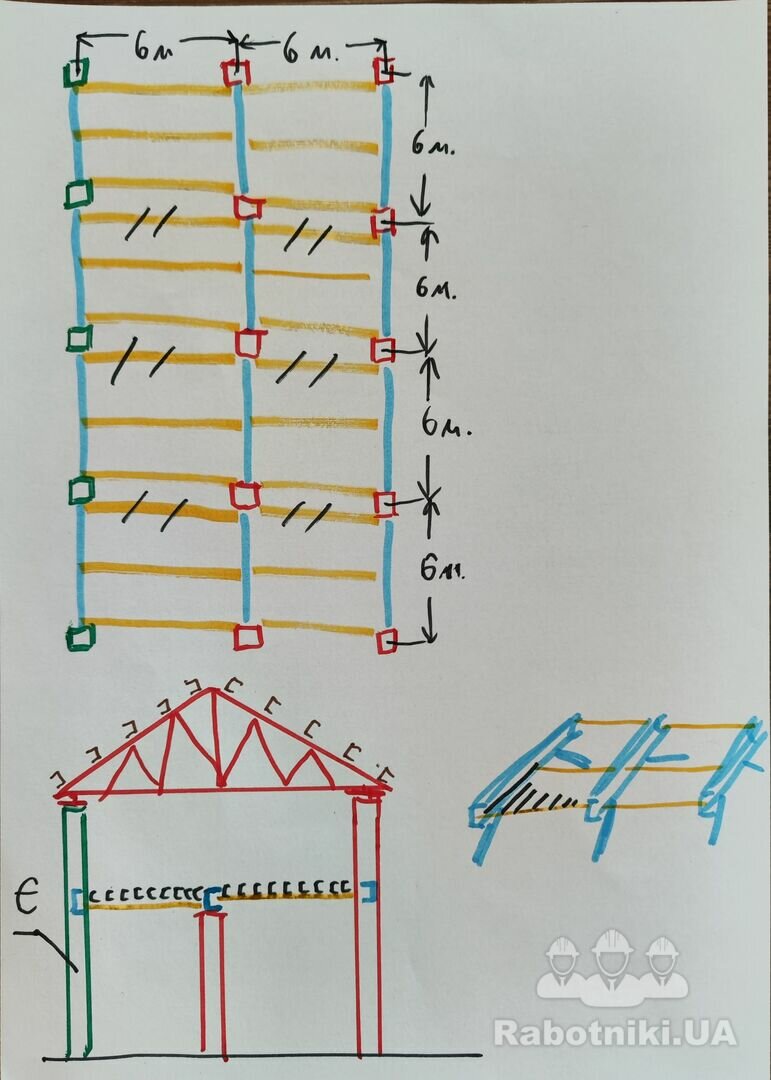 6 м
6 м.
6 м.
6 м.
6 м.
6 м.
Є
Rabotniki.UA